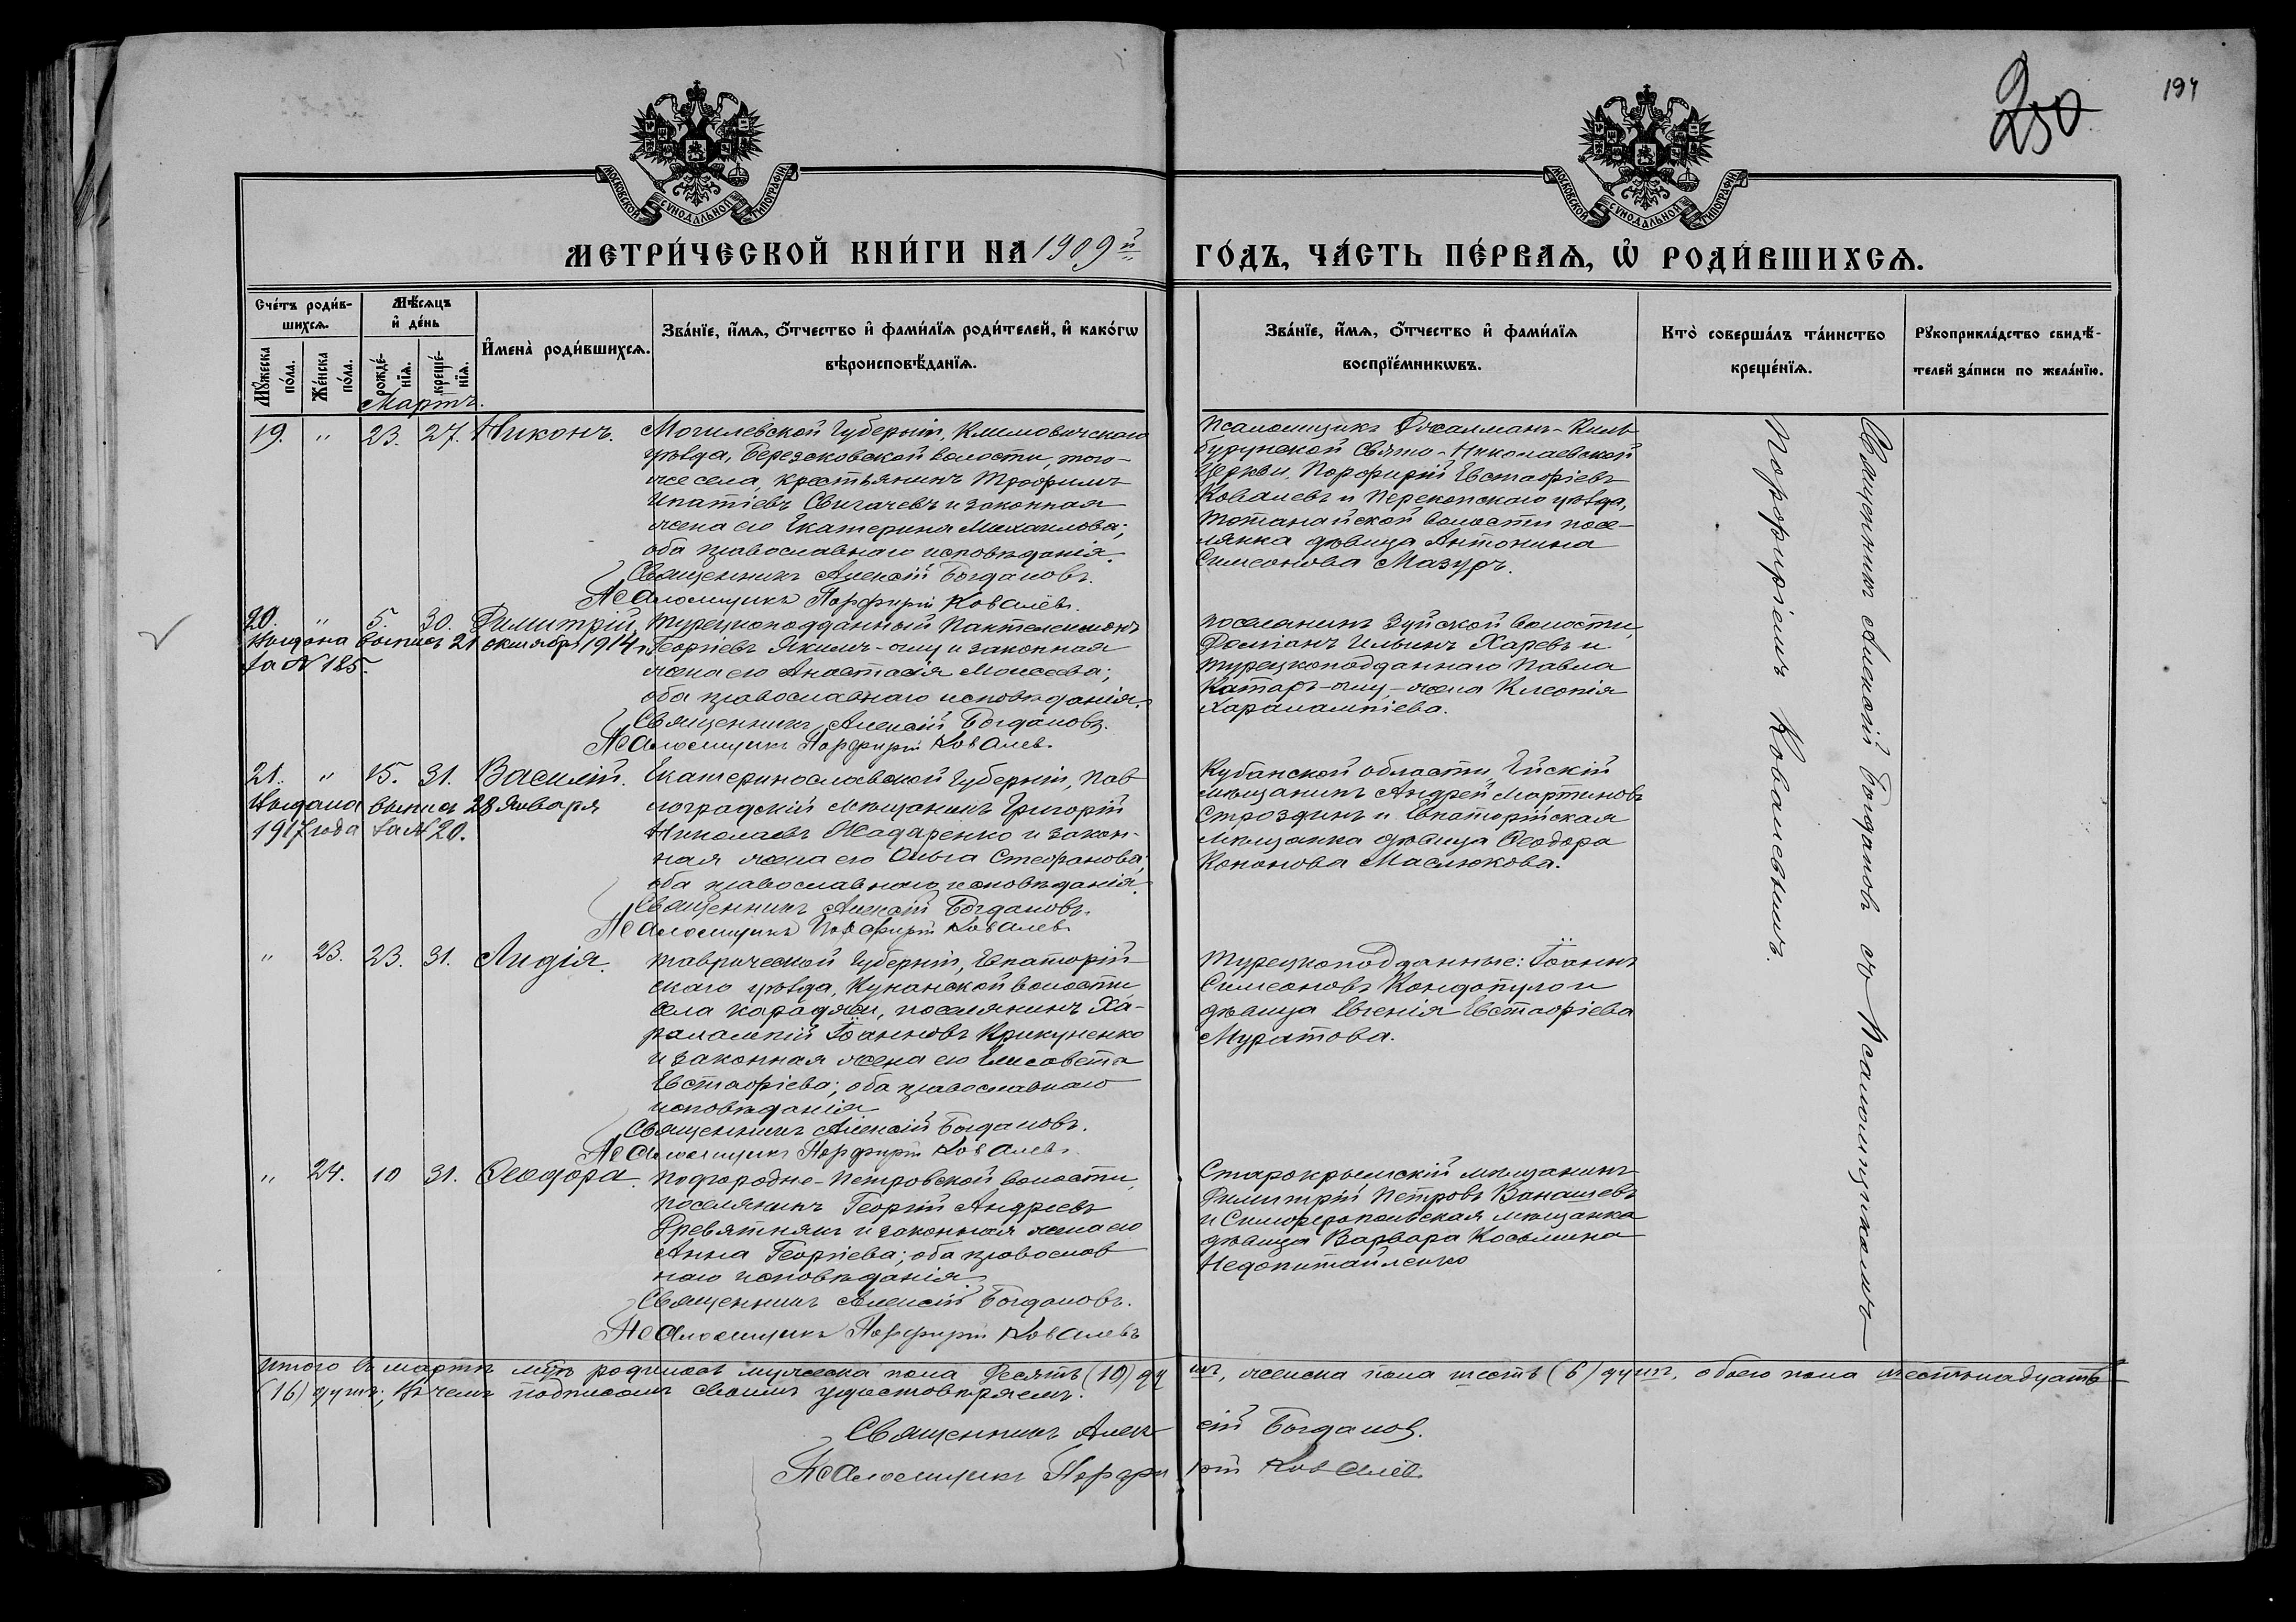 250
194
МОСКОВСКОЙ СѴНОДАЛЬНОЙ ТИПОГРАФІИ
МОСКОВСКОЙ СѴНОДАЛЬНОЙ ТИПОГРАФІИ
МЕТРИ́ЧЕСКОЙ КНИ́ГИ НА 1909й ГО́ДЪ, ЧА́СТЬ ПЕ́РВАѦ, Ѡ҆ РОДИ́ВШИХСѦ.
Сче́тъ роди́в-
шихсѧ.
Мѣ́сѧцъ
и҆ де́нь
И҆мена̀ роди́вшихсѧ.
Зва́нїе, и҆́мѧ, ѻ҆́тчество и҆ фами́лїѧ роди́телей, и҆ како́гѡ
вѣроисповѣ́данїѧ.
Зва́нїе, и҆́мѧ, ѻ҆́тчество и҆ фами́лїѧ
воспрїе́мникѡвъ.
Кто̀ соверша́лъ та́инство
креще́нїѧ.
Рꙋкоприкла́дство свидѣ́-
телей за́писи по жела́нїю.
Мꙋ́жеска по́ла.
Же́нска по́ла.
рожде́-нїѧ.
креще́-нїѧ.
Мартъ.
19. " 23. 27. Никонъ.
Могилевской Губерніи, Климовичскаго
уѣзда, Березковской волости, того-
же села, крестьянинъ Трофимъ
Ипатіевъ Свигачевъ и законная
жена его Екатерина Михаилова;
оба православнаго исповѣданія.
Священникъ Алексій Богдановъ.
Псаломщикъ Порфирій Ковалевъ.
Псаломщикъ Джалманъ-Киль-
бурунской Свято-Николаевской
Церкви, Порфирій Евстафіевъ
Ковалевъ и Перекопскаго уѣзда,
Тотанайской волости посе-
лянка дѣвица Антонина
Симеонова Мазуръ.
20. " 5. 30. Димитрій.
Выдана выпись 21 октября 1914 г.
за № 185.
Турецкоподданный Пантелеимонъ
Георгіевъ Якимъ-оглу и законная
жена его Анастасія Моисеева;
оба православнаго исповѣданія.
Священникъ Алексій Богдановъ.
Псаломщикъ Порфирій Ковалев.
Поселянинъ Зуйской волости,
Даміанъ Ильинъ Харевъ и
турецкоподданнаго Павла
Катаръ-оглу,-жена Клеопія
Харалампіева.
21. " 15. 31. Василій.
Выдана выпись 28 Января
1917 года за № 20.
Екатеринославской Губерніи, Пав-
лоградскій мѣщанинъ Григорій
Николаевъ Жадаренко и закон-
ная жена его Ольга Стефанова;
оба православнаго исповѣданія.
Священникъ Алексій Богдановъ.
Псаломщикъ Порфирій Ковалев.
Кубанской области, Ейскій
мѣщанинъ Андрей Мартиновъ
Строздинъ и Евпаторійская
мѣщанка дѣвица Ѳеодора
Кононова Маслюкова.
" 23. 23. 31. Лидія.
Таврической Губерніи, Евпаторій-
скаго уѣзда, Кунанской волости
села Караджи, поселянинъ Ха-
ралампій Іоанновъ Крикуненко
и законная жена его Елисавета
Евстафіева; оба православнаго
исповѣданія
Священникъ Алексій Богдановъ.
Псаломщикъ Порфирій Ковалев.
Турецкоподданные: Іоаннъ
Симеоновъ Кондопуло и
дѣвица Евгенія Евстафіева
Муратова.
" 24. 10 31. Ѳеодора.
Подгородне-Петровской волости,
поселянинъ Георгій Андреевъ
Древятнякъ и законная жена его
Анна Георгіева; оба православ
наго исповѣданія.
Священникъ Алексій Богдановъ.
Псаломщикъ Порфирій Ковалевъ
Старокрымскій мѣщанинъ
Димитрій Петровъ Ванашевъ
и Симферопольская мѣщанка
дѣвица Варвара Косьмина
Недопитайленко
Священникъ Алексій Богдановъ съ Псаломщикомъ
Порфиріемъ Ковалевымъ.
Итого въ мартѣ мцѣ родилось мужеска пола Десять (10) душъ, женска пола шесть (6) душъ, обоего пола шестьнадцать
(16) душъ; въ чемъ подписомъ своимъ удостовѣряемъ.
Священникъ Алексій Богданов.
Псаломщикъ Порфирій Ковалёв.